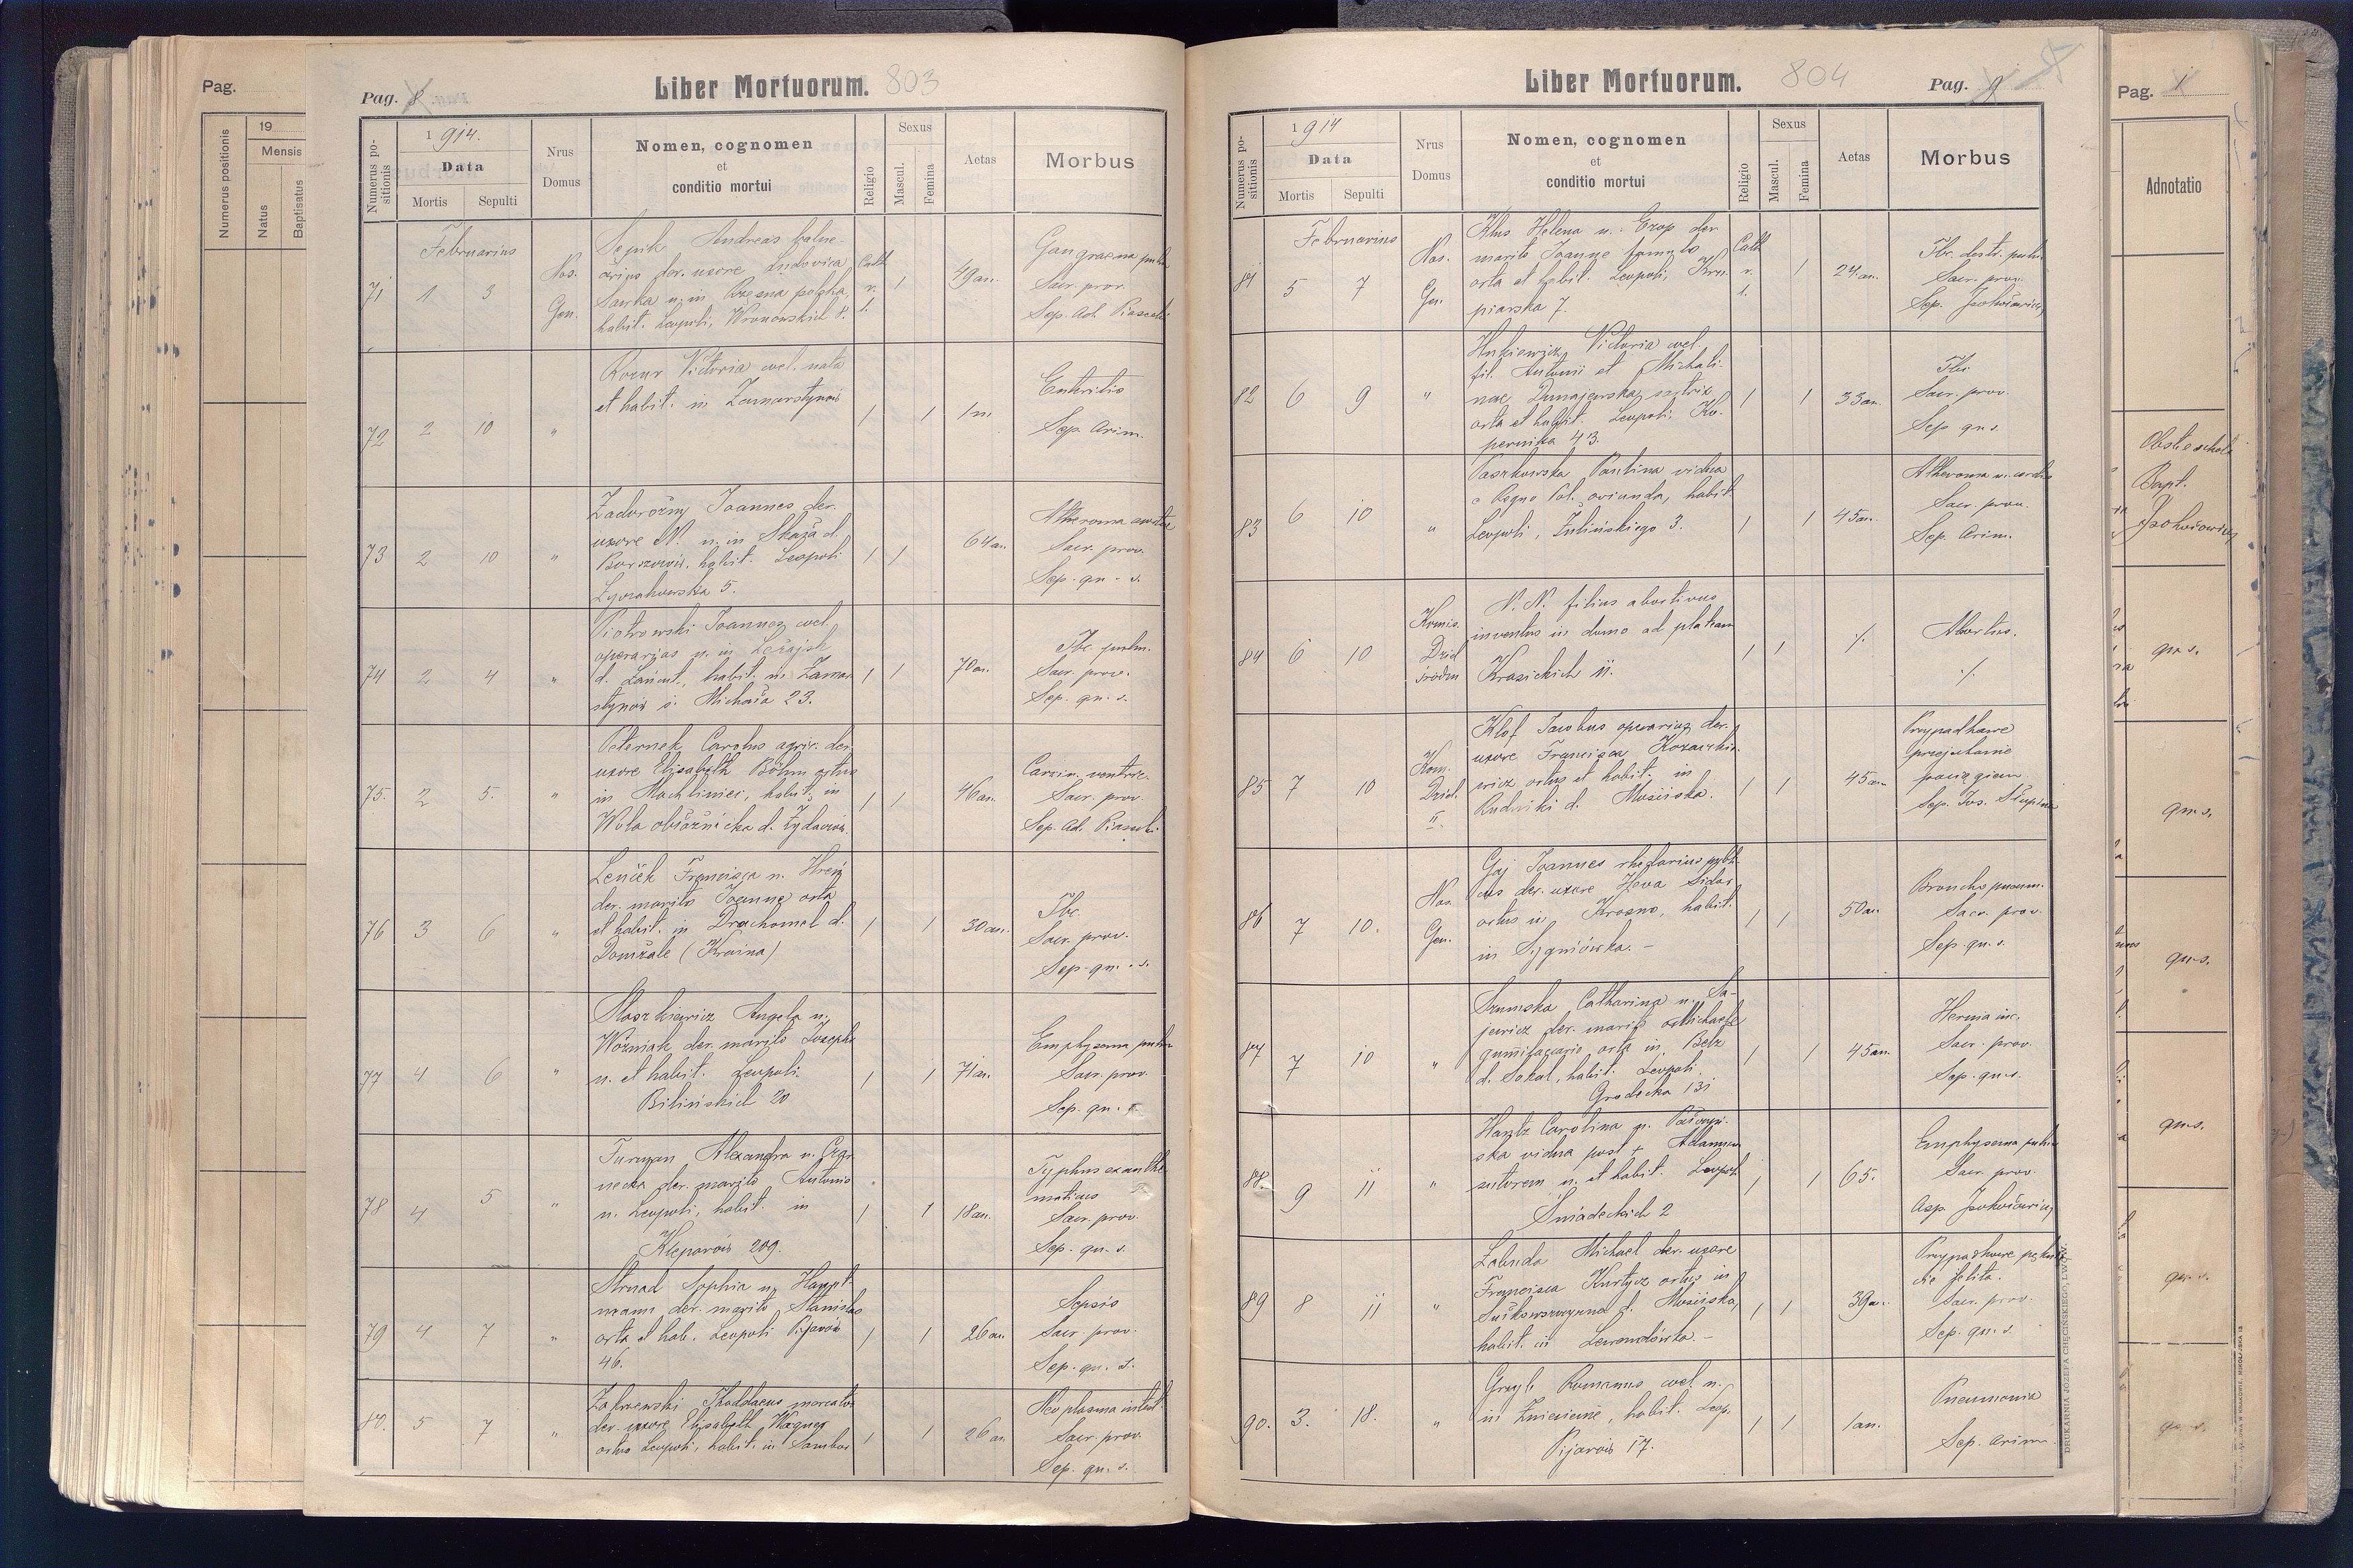 Pag.
19
Mensis
Numerus positionis
Natus
Baptisatus
Pag. 8
Liber Mortuorum. 803
Numerus positionis
1914.
Data
Mortis
Sepulti
Nrus Domus
Nomen, cognomen
et
conditio mortui
Religio
Sexus
Mascul.
Femina
Aetas
Morbus
Februarius
71 1 3
Nos. Gen.
Andreas balne-
arius der. uxore Ludovica
Sawka n. in Rzęsna polska,
habit. Leopoli, Wronowskich 8.
Cath. r. l. 1 49 an.
Gangraena pulm.
Sacr. prov.
Sep. Ad. Piasecki
72 2 10 "
Victoria coel. nata
et habit. in Zamarstynów
1 1 1 m.
Enteritis
Sep. Arim.
73 2 10 "
Zadorożny Joannes der.
uxore N. n. in Skała d.
Borszczów, habit. Leopoli
Zyorakowska 5.
1 1 64 an.
Atheroma aortae
Sacr. prov.
Sep. qu. s.
74 2 4 "
Piotrowski Joannes coel.
operarius n. in Leżajsk
d. Łańcut, habit. in Zamar
stynów ś. Michała 23.
1 1 70 an.
Tbc. pulm.
Sacr. prov.
Sep. qu. s.
75. 2 5. "
Peternek Carolus agric. der.
uxore Elisabeth Böhm ortus
in Machliniec, habit. in
Wola obłaźnicka d. Żydaczów
1 1 46 an.
Carcin. ventric.
Sacr. prov.
Sep. Ad. Piasecki
76 3 6 "
Francisca n.
der. marito Joanne orta
et habit. in Drachomel d.
Domžale (Kraina)
1 1 30 an.
Tbc.
Sacr. prov.
Sep. qu. s.
77 4 6 "
Staszkiewicz Angela n.
Woźniak der. marito Josepho
n. et habit. Leopoli
Bilińskich 20
1 1 71 an.
Emphysema pulm.
Sacr. prov.
Sep. qu. s.
78 4 5 "
Alexandra n.
necka der. marito Antonio
n. Leopoli, habit. in
Kleparów 209.
1 1 18 an.
Typhus exanthe
maticus
Sacr. prov.
Sep. qu. s.
79 4 7 "
Strnad Sophia n. Haupt
mann der. marito Stanislao
orta et hab. Leopoli Pijarów
46.
1 1 26 an.
Sepsis
Sacr. prov.
Sep. qu. s.
80. 5 7 "
Zakrzewski Thaddaeus mercator
der. uxore Elisabeth Wagner
ortus Leopoli, habit. in Sambor
1 1 26 an.
Neoplasma intest.
Sacr. prov.
Sep. qu. s.
Liber Mortuorum. 804
Pag. 9
Numerus positionis
1914
Data
Mortis
Sepulti
Nrus Domus
Nomen, cognomen
et
conditio mortui
Religio
Sexus
Mascul.
Femina
Aetas
Morbus
Februarius
81 5 7
Nos. Gen.
Klus Helena n. Czop der
marito Joanne famulo
orta et habit. Leopoli, Kru-
piarska 7.
Cath. r. l. 1 24 an.
Tbc. destr. pulm.
Sacr. prov.
Sep.
82 6 9 "
Victoria coel.
fil. Antonii et Michali-
nae Dunajewska nutrix
orta et habit. Leopoli, Ko-
pernika 43.
1 1 33 an.
Tbc.
Sacr. prov.
Sep. qu. s.
83 6 10 "
Paszkowska Paulina vidua
e Regno Pol. oriunda, habit.
Leopoli, Żulińskiego 3.
1 1 45 an.
Atheroma m. cordis
Sacr. prov.
Sep. Arim.
84 6 10
Komis. Dziel śródm
N. N. filius abortivus
inventus in domo ad plateam
Krasickich 11.
1 1 ./.
Abortus.
./.
85 7 10
Kom. Dziel. II.
Klof Jacobus operarius der.
uxore Francisca
wicz ortus et habit. in
Rudniki d. Mościska.
1 1 45 an
Przypadkowe
przejechanie
pociągiem
Sep. Jos.
86 7 10.
Nos. Gen.
Gaj Joannes rhedarius publi
cus der. uxore Heva Sidor
ortus in Krosno, habit.
in Sygniówka. –
1 1 50 an
Broncho pneum.
Sacr. prov.
Sep. qu. s.
87 7 10 "
Szumska Catharina n. Sa-
jewicz der. marito Michaele
orta in Bełz
d. Sokal, habit. Leopoli
Grodecka 131
1 1 45 an.
Hernia inc.
Sacr. prov.
Sep. qu. s.
88. 9 11 "
Carolina n.
ska vidua post + Adamum
sutorem n. et habit. Leopoli
Śniadeckich 2
1 1 65.
Emphysema pulm
Sacr. prov.
89 8 11 "
Żabuda Michael der. uxore
Francisca Kurtycz ortus in
d. Mościska,
habit. in Lewandówka. –
1 1 39 a.
Przypadkowe pęknię
cie jelita.
Sacr. prov.
Sep. qu. s.
90. 3. 18. "
Romanus coel. n.
in Zniesienie, habit. Leop.
Pijarów 17.
1 1 1 an.
Pneumonia
Sep. Arim
DRUKARNIA JÓZEFA CHĘCIŃSKIEGO, LWÓW.
Pag. 1
Adnotatio
Bapt.
qu. s.
qu. s.
qu. s.
qu. s.
qu. s.
qu. s.